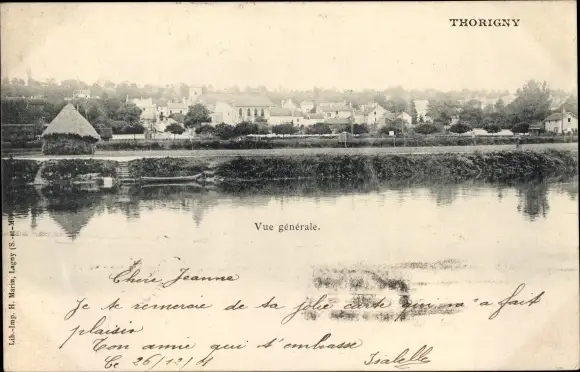 THORIGNY
Vue générale.
Lib.-Imp. H. Marin, Lagny (S.-et-M.)
Chère Jeanne
Je te remercie de ta jolie carte qui m'a fait
plaisir
Ton amie qui t'embrasse
Ce 26/12/4 Isabelle